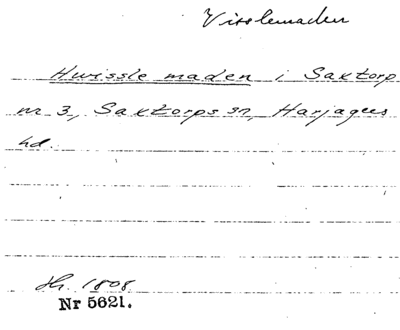 Visslemaden
Hwissle maden i Saxtorp
nr 3, Saxtorps sn, Harjagers
hd.
Hr. 1808
Nr 5621.